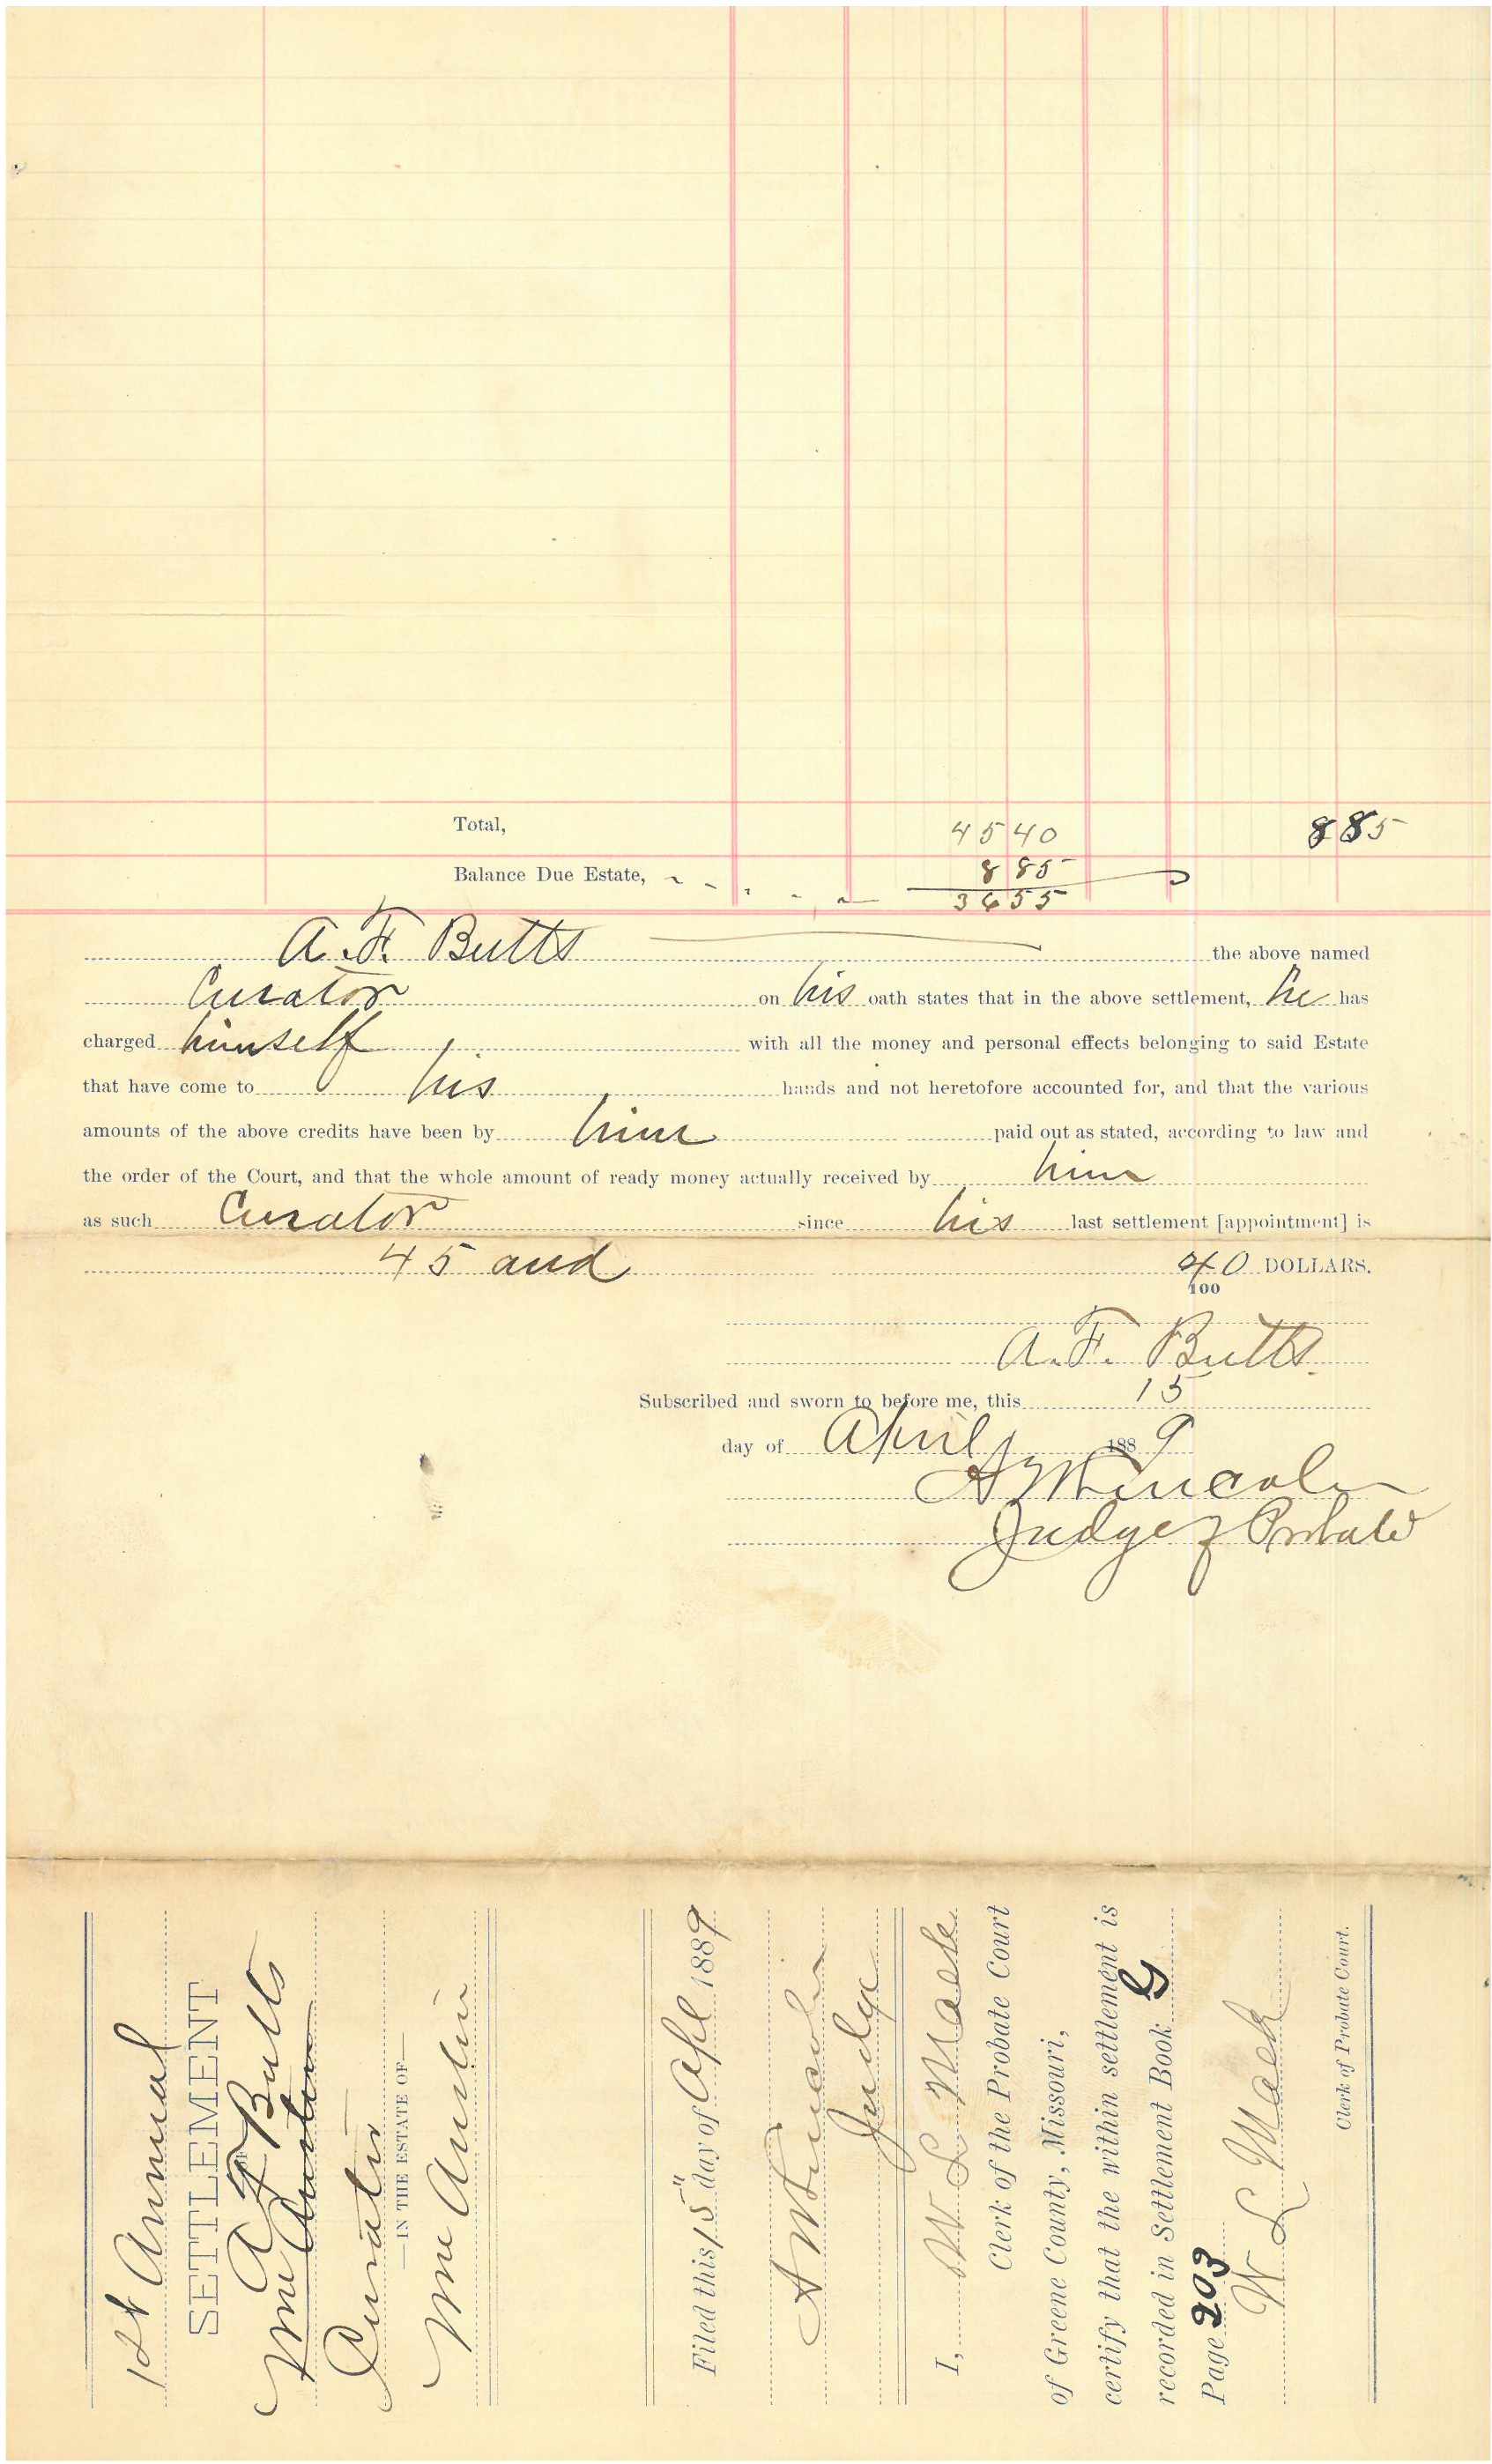 Total, 45 40 8 85
Balance Due Estate, 8 85
36 55
A. F. Butts the above named
Curator on his oath states that in the above settlement, he has
charged himself with all the money and personal effects belonging to said Estate
that have come to his hands and not heretofore accounted for, and that the various
amounts of the above credits have been by him paid out as stated, according to law and
the order of the Court, and that the whole amount of ready money actually received by him
as such Curator since his last settlement [appointment] is
45 and 40 DOLLARS.
100
A. F. Butts.
Subscribed and sworn to before me, this 15
day of April 1889
Lincoln
Judge of Probate
1st Annual
SETTLEMENT
A F Butts
Wm Austin
Curator
—IN THE ESTATE OF—
Wm Austin
Filed this 15" day of Apl 1889
Lincoln
Judge
I, W L Mack
Clerk of the Probate Court
of Greene County, Missouri,
certify that the within settlement is
recorded in Settlement Book G
Page 203
W L Mack
Clerk of Probate Court.